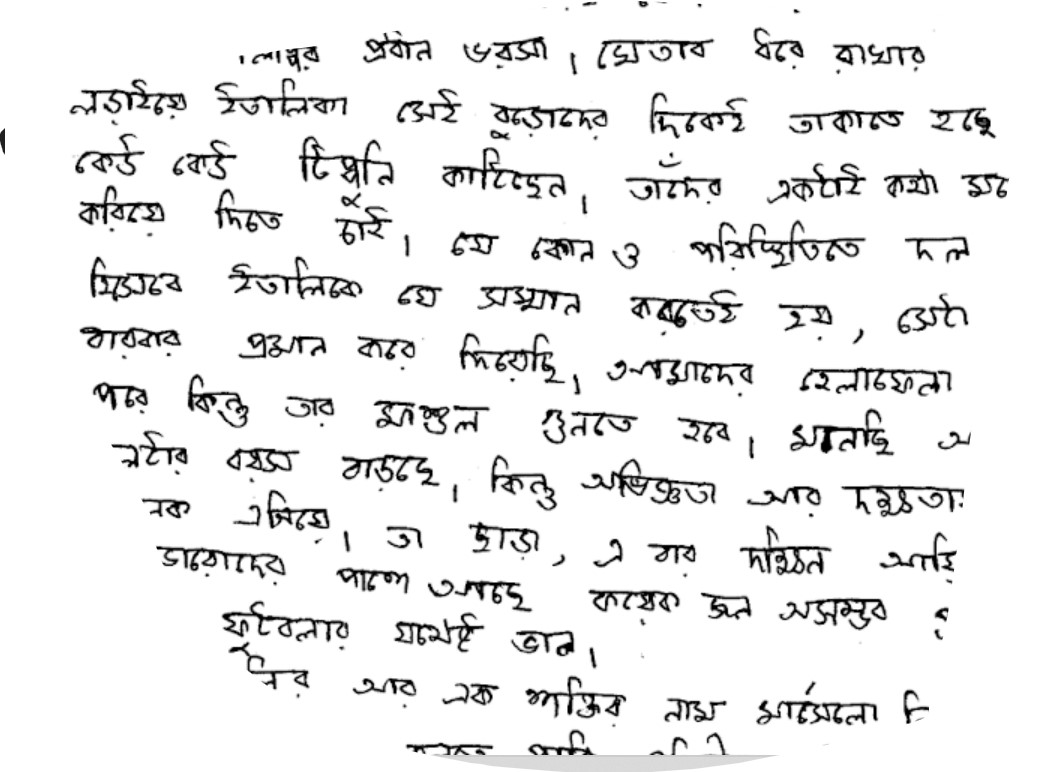 প্রধান ভরসা । খেতাব ধরে রাখার
লড়াইয়ে ইতালিকা সেই বুড়োদের দিকেই তাকাতে হচ্ছে
কেউ কেউ টিপ্পুনি কাটিছেন । তাঁদের একটাই কথা মনে
করিয়ে দিতে চাই । যে কোন ও পরিস্থিতিতে দল
হিসেবে ইতালিকে যে সম্মান করতেই হয়, সেটা
বারবার প্রমান করে দিয়েছি । আমাদের হেলাফেলা
পরে কিন্তু তার মাশুল গুনতে হবে । মানছি অ
বয়স বাড়ছে । কিন্তু অভিজ্ঞতা আর দক্ষতা
এগিয়ে । তা ছাড়া, এ বার দক্ষিণ আফ্রি
পাশে আছে কয়েক জন অসম্ভব
ফুটবলার যথেষ্ট ভাল ।
আর এক শক্তির নাম মার্সেলো